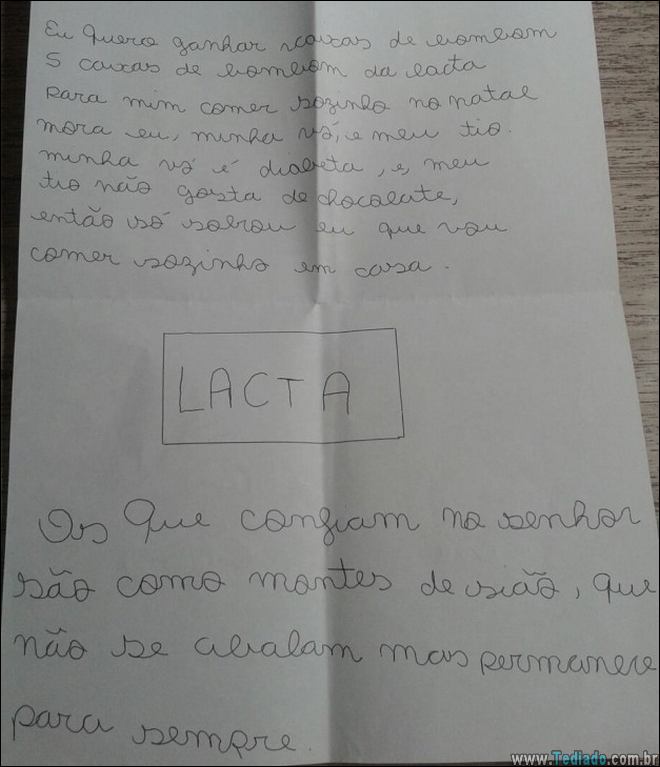 Eu Quero ganhar caixas de bombom
5 caixas de bombom da lacta
para mim comer sozinho no natal
mora eu, minha vó, e meu tio.
minha vó é diabeta, e, meu
tio não gosta de chocolate,
então só sobrou eu que vou
comer sozinho em casa.
LACTA
Os Que confiam no senhor
são como montes de sião, que
não se abalam mas permanece
para sempre.
www.Tediado.com.br